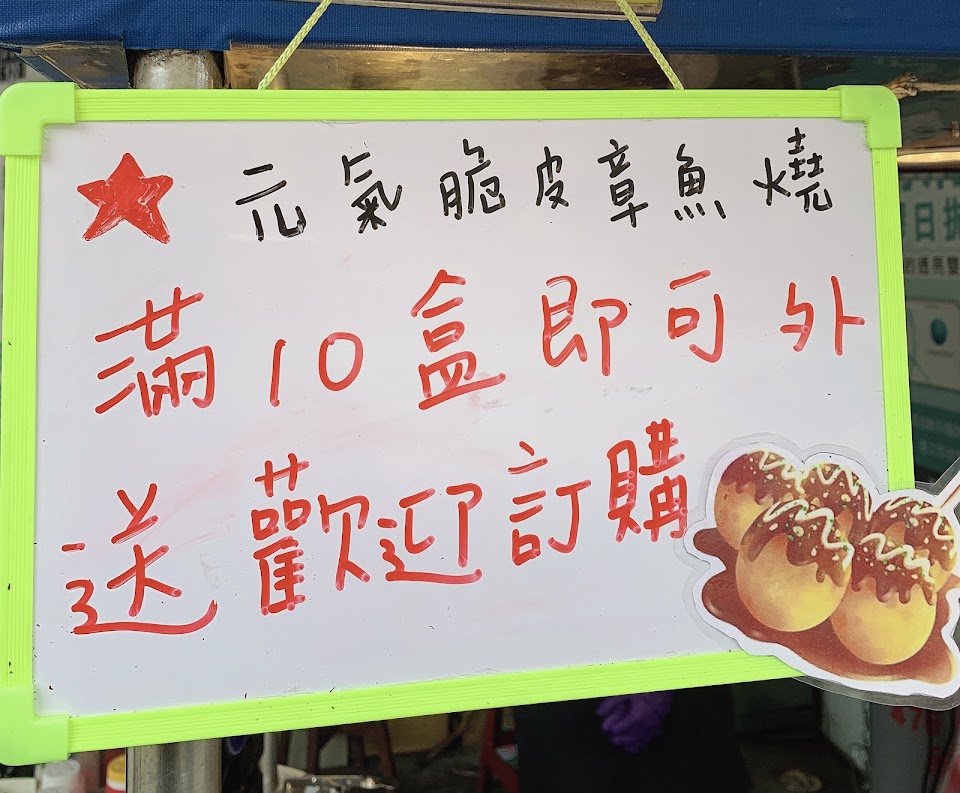 元氣脆皮章魚燒
滿10盒即可外
送歡迎訂購